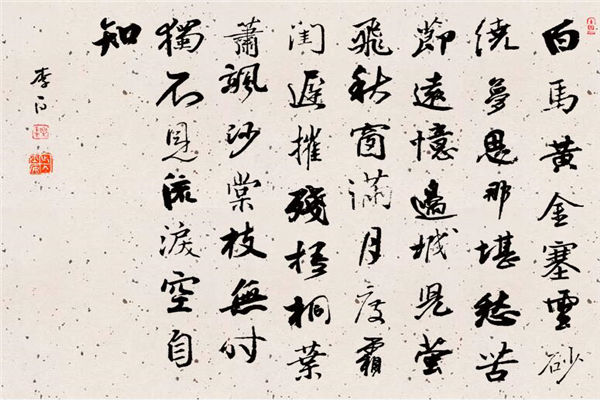 白馬黃金塞雲砂
繞夢思那堪愁苦
節遠憶邊城兒螢
飛秋窗滿月度霜
閨遲摧殘梧桐葉
蕭颯沙棠枝無時
獨不見流淚空自
知
李白